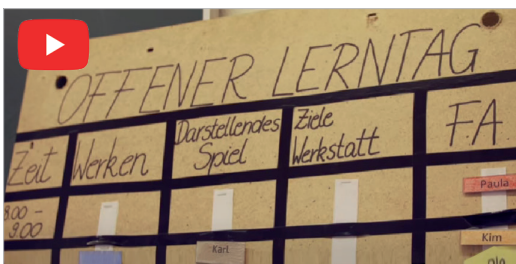 OFFENER LERNTAG
Zeit
Werken
Darstellendes
Spiel
Ziele
Werkstatt
FA
8.00 –
9.00
Paula
Karl
Kim